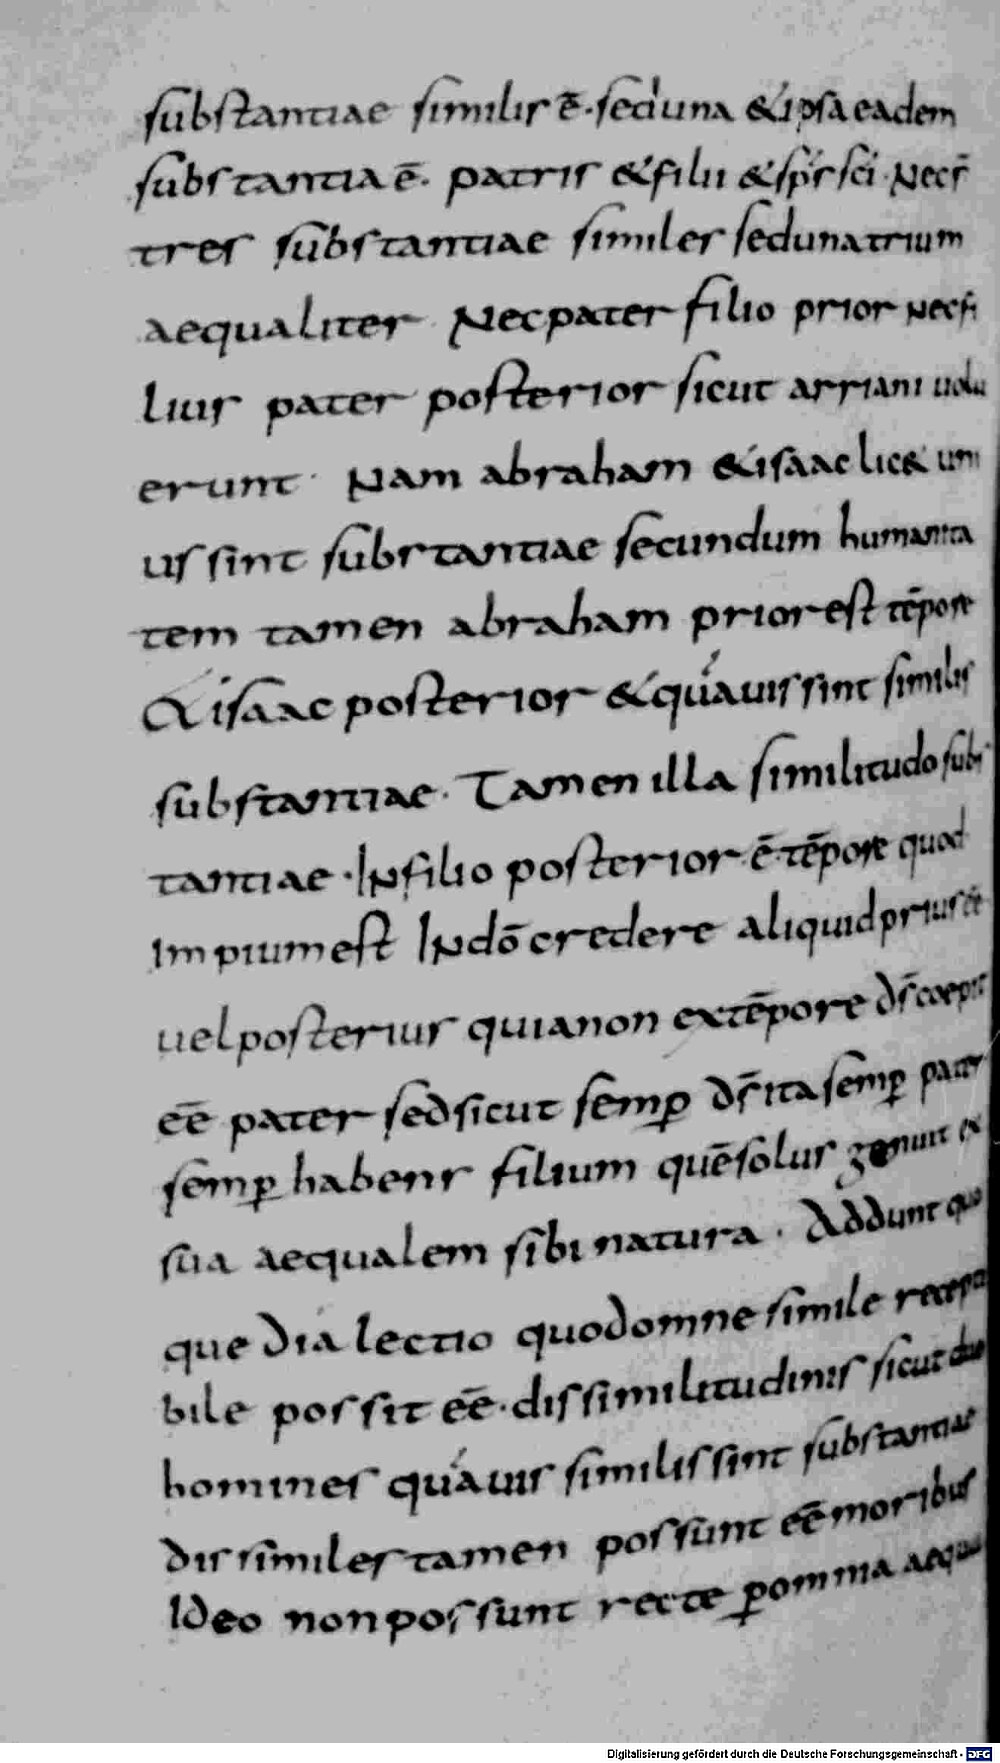 substantiae similis ē · sed una & ipsa eadem
substantia ē · patris & filii & sp̄s sc̄i · Nec s̄
tres substantiae similes sed una trium
aequaliter · Nec pater filio prior nec fi
lius pater posterior sicut arriani uolu
erunt · Nam abraham & isaac lic& uni
us sint substantiae secundum humanita
tem tamen abraham prior est tēpore
& isaac posterior & quāuis sint similis
substantiae · Tamen illa similitudo subs
tantiae · In filio posterior ē tēpore quod
Impium est In dō credere aliquid prius eē
uel posterius quia non ex tēpore ds̄ coepit
eē pater sed sicut semꝑ ds̄ ita semꝑ pater
semꝑ habens filium quē solus genuit ex
sua aequalem sibi natura · Addunt quo
que dialectio quod omne simile recepta
bile possit eē · dissimilitudinis sicut duo
homines quāuis similis sint substantiae
dissimiles tamen possunt eē moribus
Ideo non possunt recte ꝑ omnia aequa
Digitalisierung gefördert durch die Deutsche Forschungsgemeinschaft - DFG